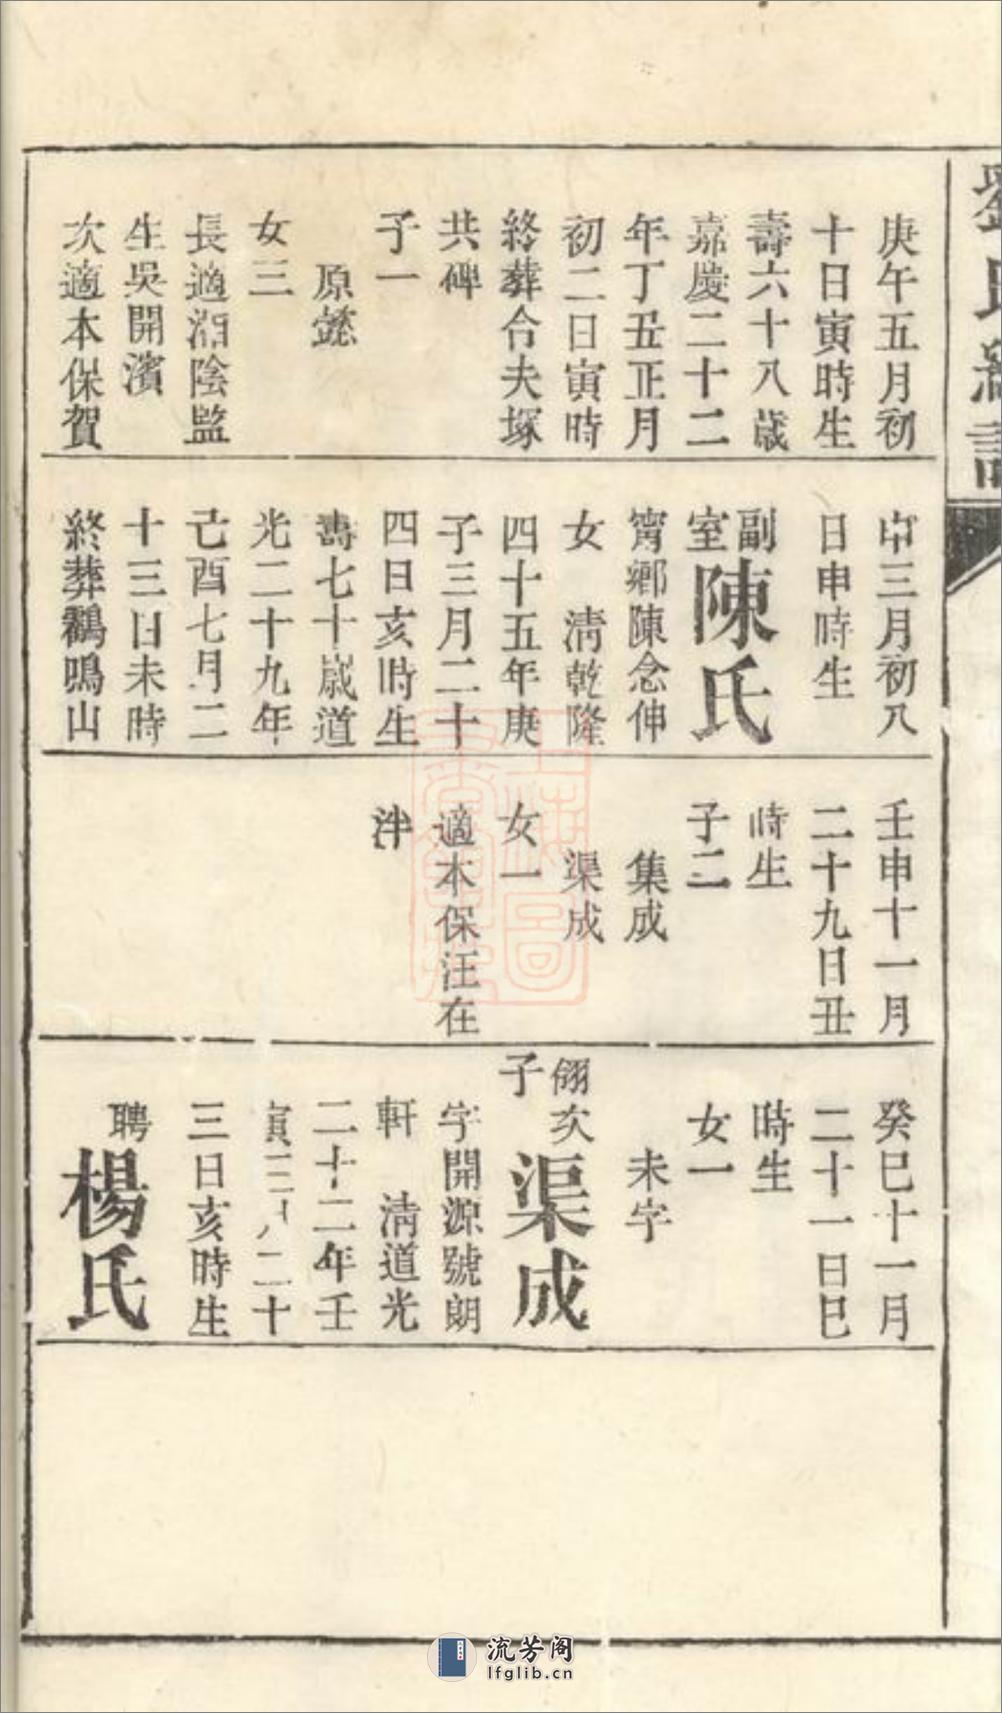 劉氏
庚午五月初
十日寅時生
壽六十八歲
嘉慶二十二
年丁丑正月
初二日寅時
終葬合夫塚
共碑
子一
原懿
女三
長適湘陰監
生吳開濱
次適本保賀
申三月初八
日申時生
副室陳氏
甯鄉陳念伸
女 清乾隆
四十五年庚
子三月二十
四日亥時生
壽七十歲道
光二十九年
己酉七月二
十三日未時
終葬鸛鳴山
壬申十一月
二十九日丑
時生
子二
集成
渠成
女一
適本保汪在
泮
癸巳十一月
二十一日巳
時生
女一
未字
翎次子渠成
字開源號朗
軒 清道光
二十二年壬
寅二十
三日亥時生
聘楊氏
流芳阁
lfglib.cn